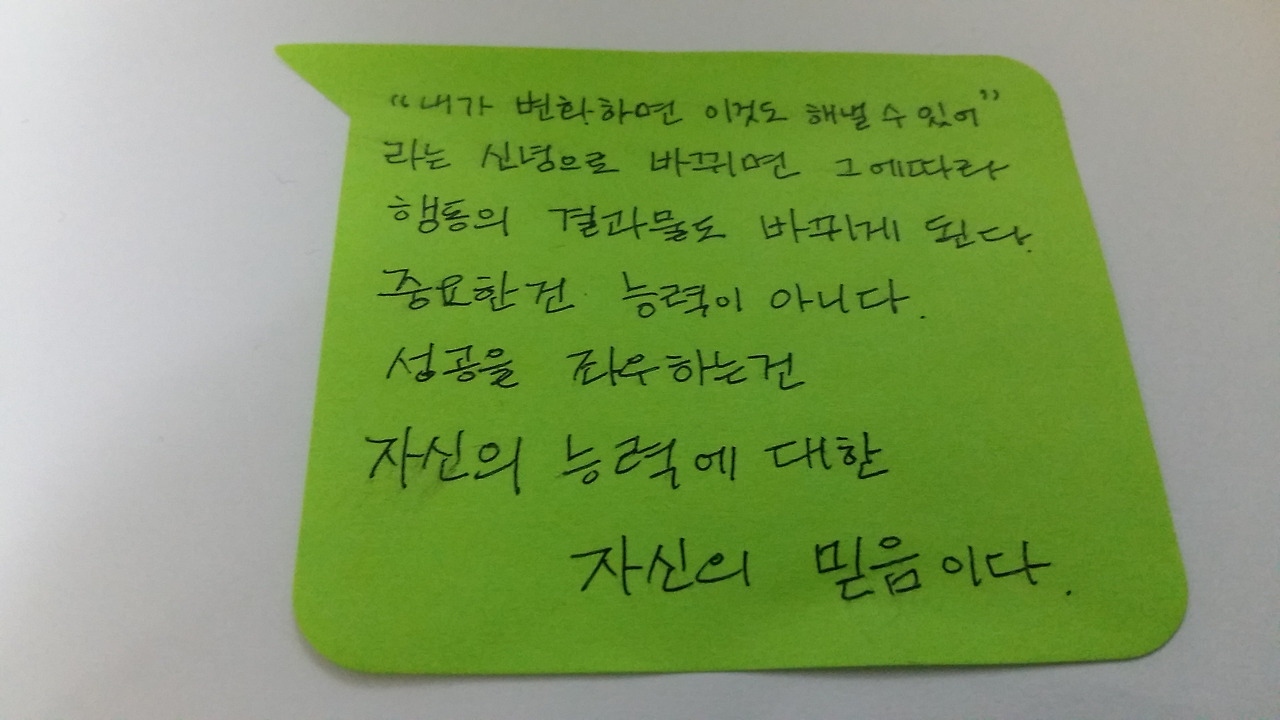 "내가 변화하면 이것도 해낼 수 있어"
라는 신념으로 바뀌면 그에따라
행동의 결과물도 바뀌게 된다.
중요한건 능력이 아니다.
성공을 좌우하는건
자신의 능력에 대한
자신의 믿음이다.